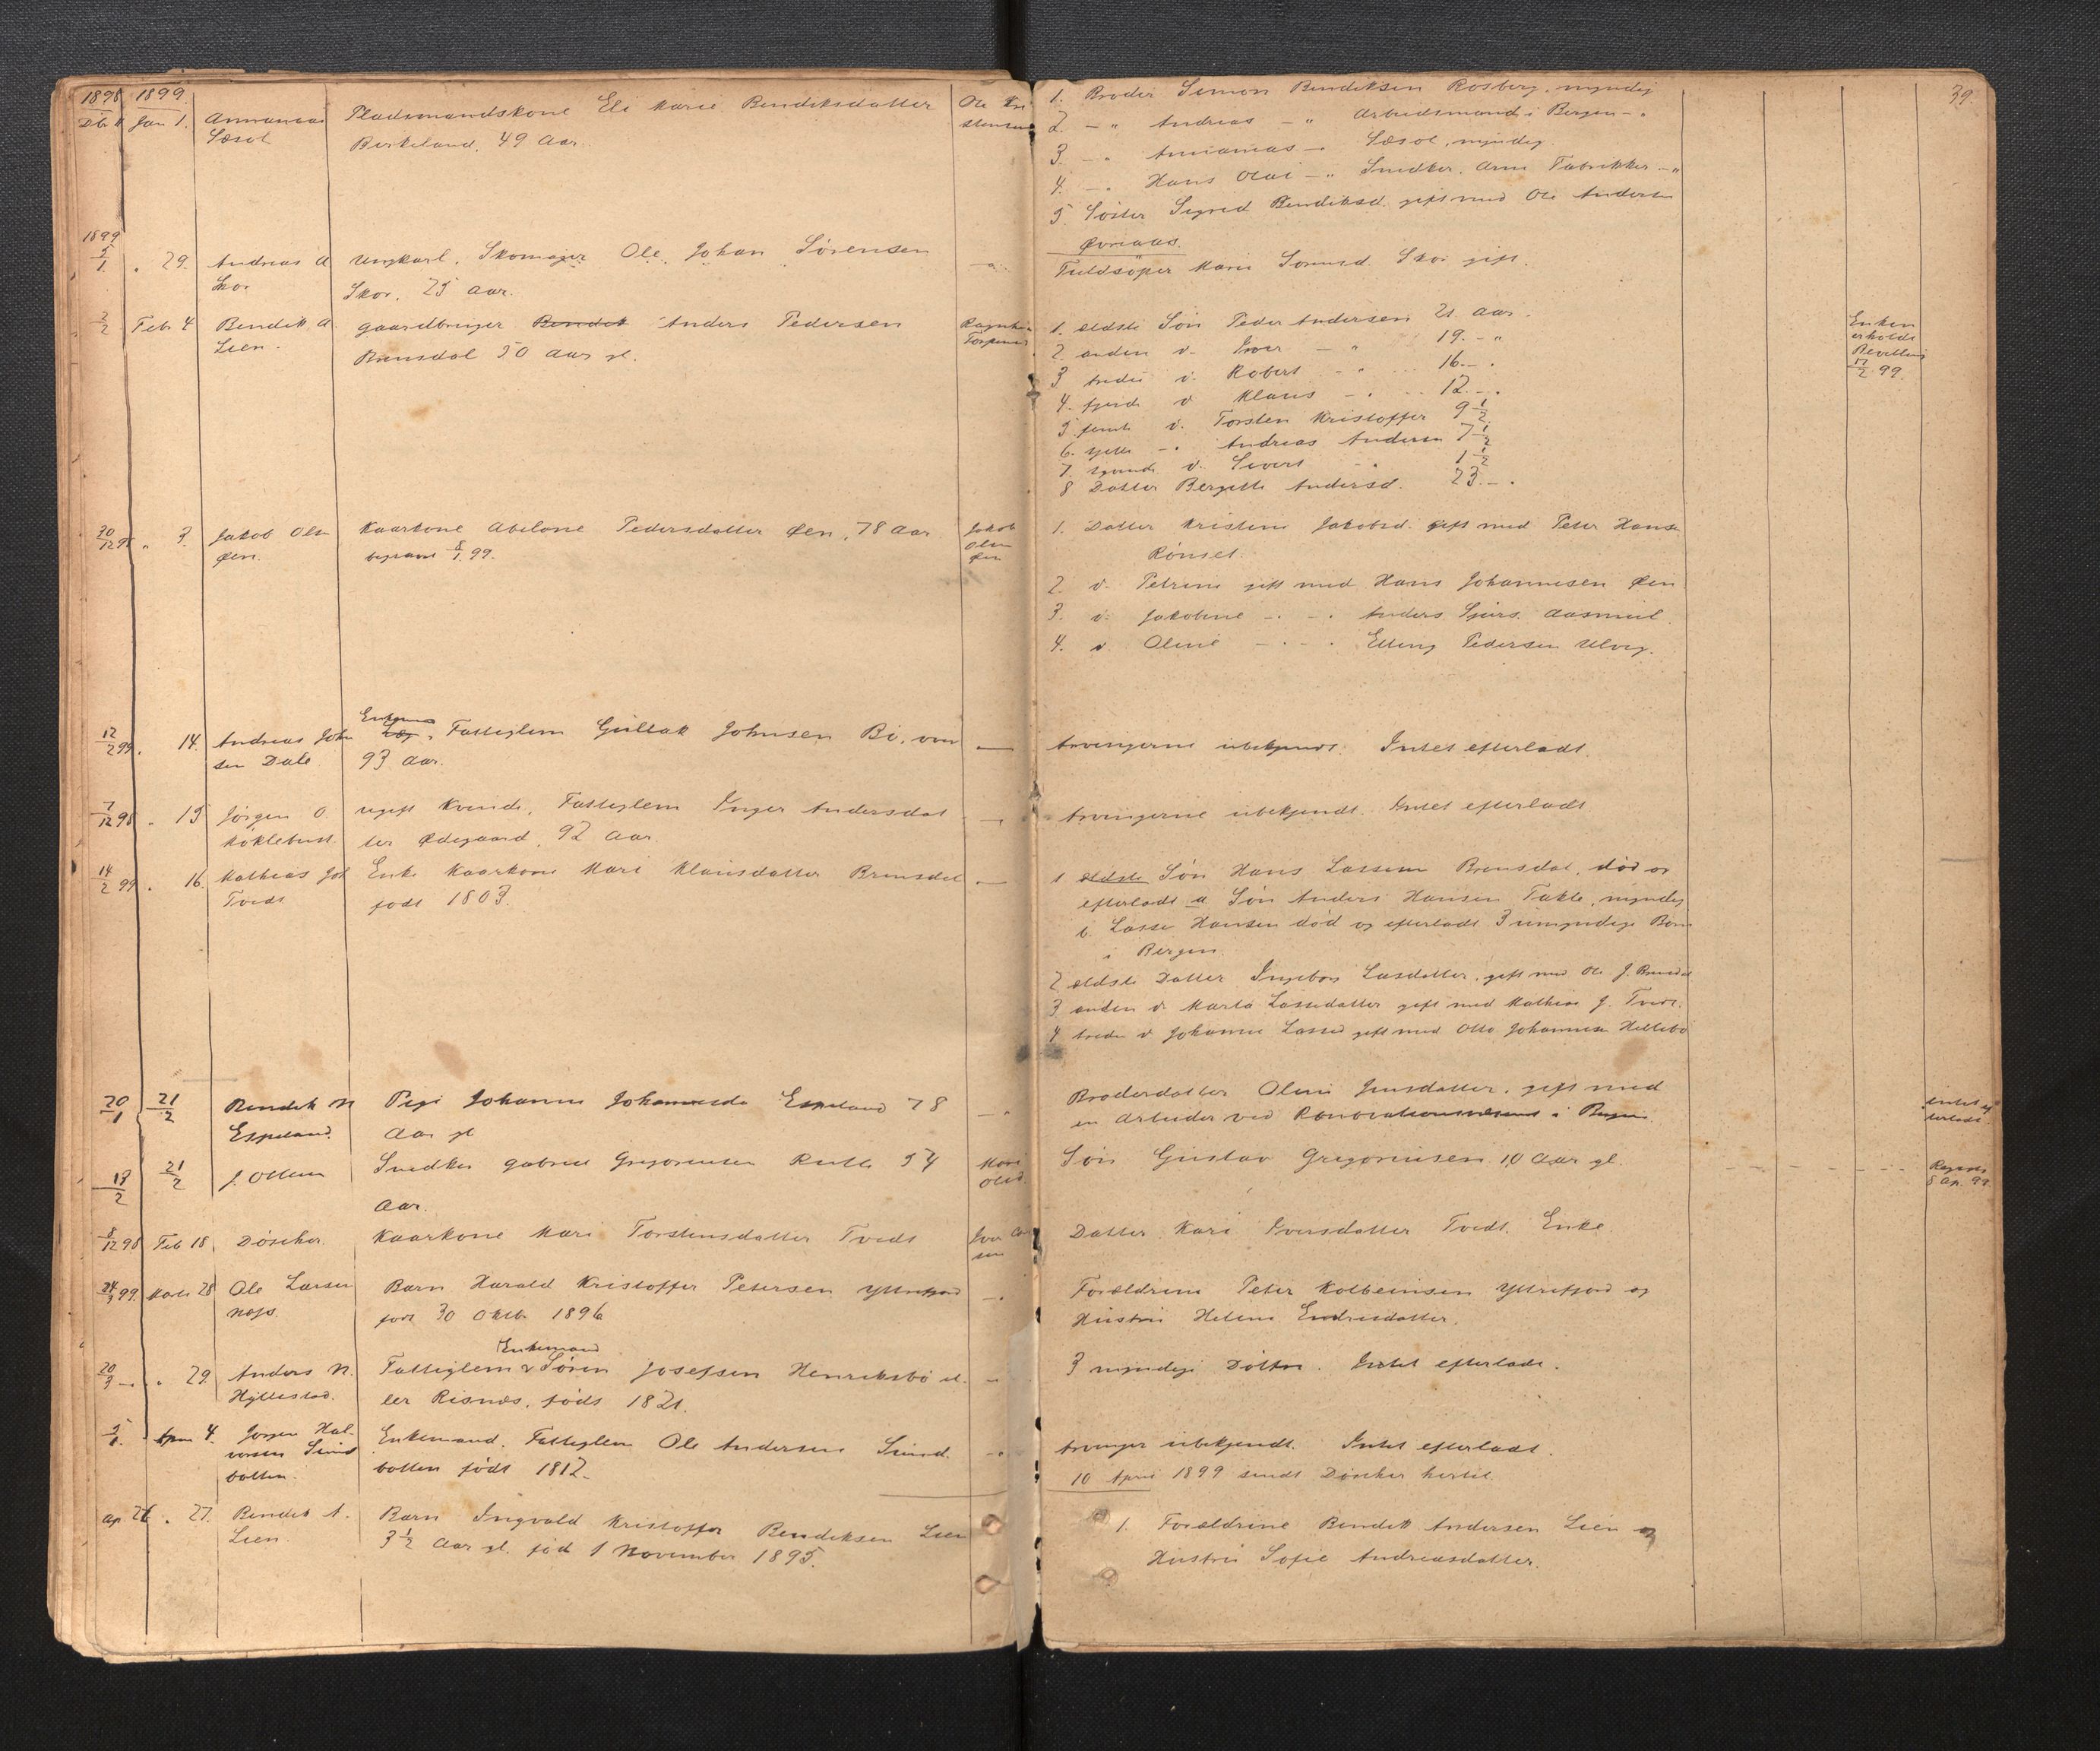 39.
1898 1899.
Jan 1. Ananias Sæsol
Pladsmandskone Eli Marie Bendiksdatter
Birkeland, 49 Aar.
1. Broder Simon Bendiksen Rosberg, myndig
2. -"- Andreas -"- Arbeidsmand i Bergen -"-
3. -"- Ananias -"- Sæsol, myndig.
4. -"- Hans Olai -"- Snedker, Arne Fabrikker -"-
5 Søster Sigrid Bendiksd. gift med Ole Andersen
Øvreaas.
1899
5/1 " 29. Andreas A Skor
Ungkarl, Skomager Ole Johan Sørensen
Skor, 25 Aar.
-"-
Marie Sørensd. Skor gift.
2/2 Febr 4 Bendik A. Lien.
Gaardbruger Bendik Anders Pedersen
Brunsdal 50 Aar gl.
1. ældste Søn Peder Andersen 21 Aar.
2. anden d. Iver -"- 19. -"
3 tredie d. Robert -"- 16. -"
4. fjerde d. Klaus -"- 12. -"
5. femte d. Torsten Kristoffer 9 1/2
6. sjette -"- Andreas Andersen 7 1/2
7. syvende d. Sivert -"- 1 1/2
8 Datter Bergitte Andersd. 23. -"
Enken
erholdt
Bevilling
17/2 99.
30/12 98 " 3. Jakob Olsen Øen.
Kaarkone Abelone Pedersdatter Øen, 78 Aar
begravet 8/1 99.
Jakob
Olsen
Øen
1. Datter Kristine Jakobsd. gift med Peter Hansen
Rønset.
2. d. Petrine gift med Hans Johannesen Øen
3. d. Jakobine -"- -"- Anders Sjurs. Aasmul.
4. d. Oline -"- -"- Elling Pedersen Ulvig.
12/2 99. 14. Andreas Johnsen Dale
Enkemand, Fattiglem Gullak Johnsen Bø, over
93 Aar.
Arvingerne ubekjendt. Intet efterladt.
7/12 98 " 15 Jørgen O Køklebust.
ugift Kvinde, Fattiglem Inger Andersdat
ter Ødegaard, 92 Aar.
Arvingerne ubekjendt. Intet efterladt.
14/2 99. 16. Mathias Joh Tvedt
Enke Kaarkone Mari Klausdatter Brunsdal
født 1803.
1 ældste Søn Hans Lassesen Brunsdal, død og
efterladt a Søn Anders Hansen Takle, myndig
b. Lasse Hansen død og efterladt 3 umyndige Børn
i Bergen.
2 ældste Datter Ingeborg Lasdatter, gift med Ole J. Brunsdal
3 anden d. Marta Lassedatter gift med Mathias J. Tvedt.
4 tredie d Johanne Lassed gift med Otto Johannesen Hellebø
20/1 21/2 Bendik N Espeland.
Pige Johanne Johannesda Espeland 78
Aar gl
-"-
Broderdatter Oline Jensdatter, gift med
en Arbeider ved Renovationsvæsenet i Bergen.
intet ef
terladt.
17/2 21/2 J. Ottesen
Snedker Gabriel Gregoriusen 54
Aar.
Mari
Olsd.
Søn Gustav Gregoriusen 10 Aar gl.
8 Ap. 99.
8/12 98 Feb 18. Døscher.
Kaarkone Mari Torstensdatter Tvedt
Datter Kari Iversdatter Tvedt, Enke.
24/3 99. Marts 28 Ole Larsen Næs.
Barn Harald Kristoffer Petersen Yttrefjord
født 30 Oktb 1896
Forældrene Peter Kolbeinsen Yttrefjord og
Hustru Helene Endresdatter.
20/3 " 29. Anders N. Hyllestad.
Enkemand
Fattiglem Søren Josefsen Henriksbø el
ler Risnes, født 1821.
3 myndige Døttre. Intet efterladt.
5/1. April 4. Jørgen Hal-
vorsen Sund
botten.
Enkemand, Fattiglem Ole Andersen Sund.
botten født 1812.
Arvinger ubekjendt. Intet efterladt.
10 April 1899 sendt Døscher hertil.
Ap. 26 " 27. Bendik A. Lien.
Barn Ingvald Kristoffer Bendiksen Lien
3 1/2 Aar gl. født 1 November 1895.
1. Forældrene Bendik Andersen Lien og
Hustru Sofie Andreasdatter.